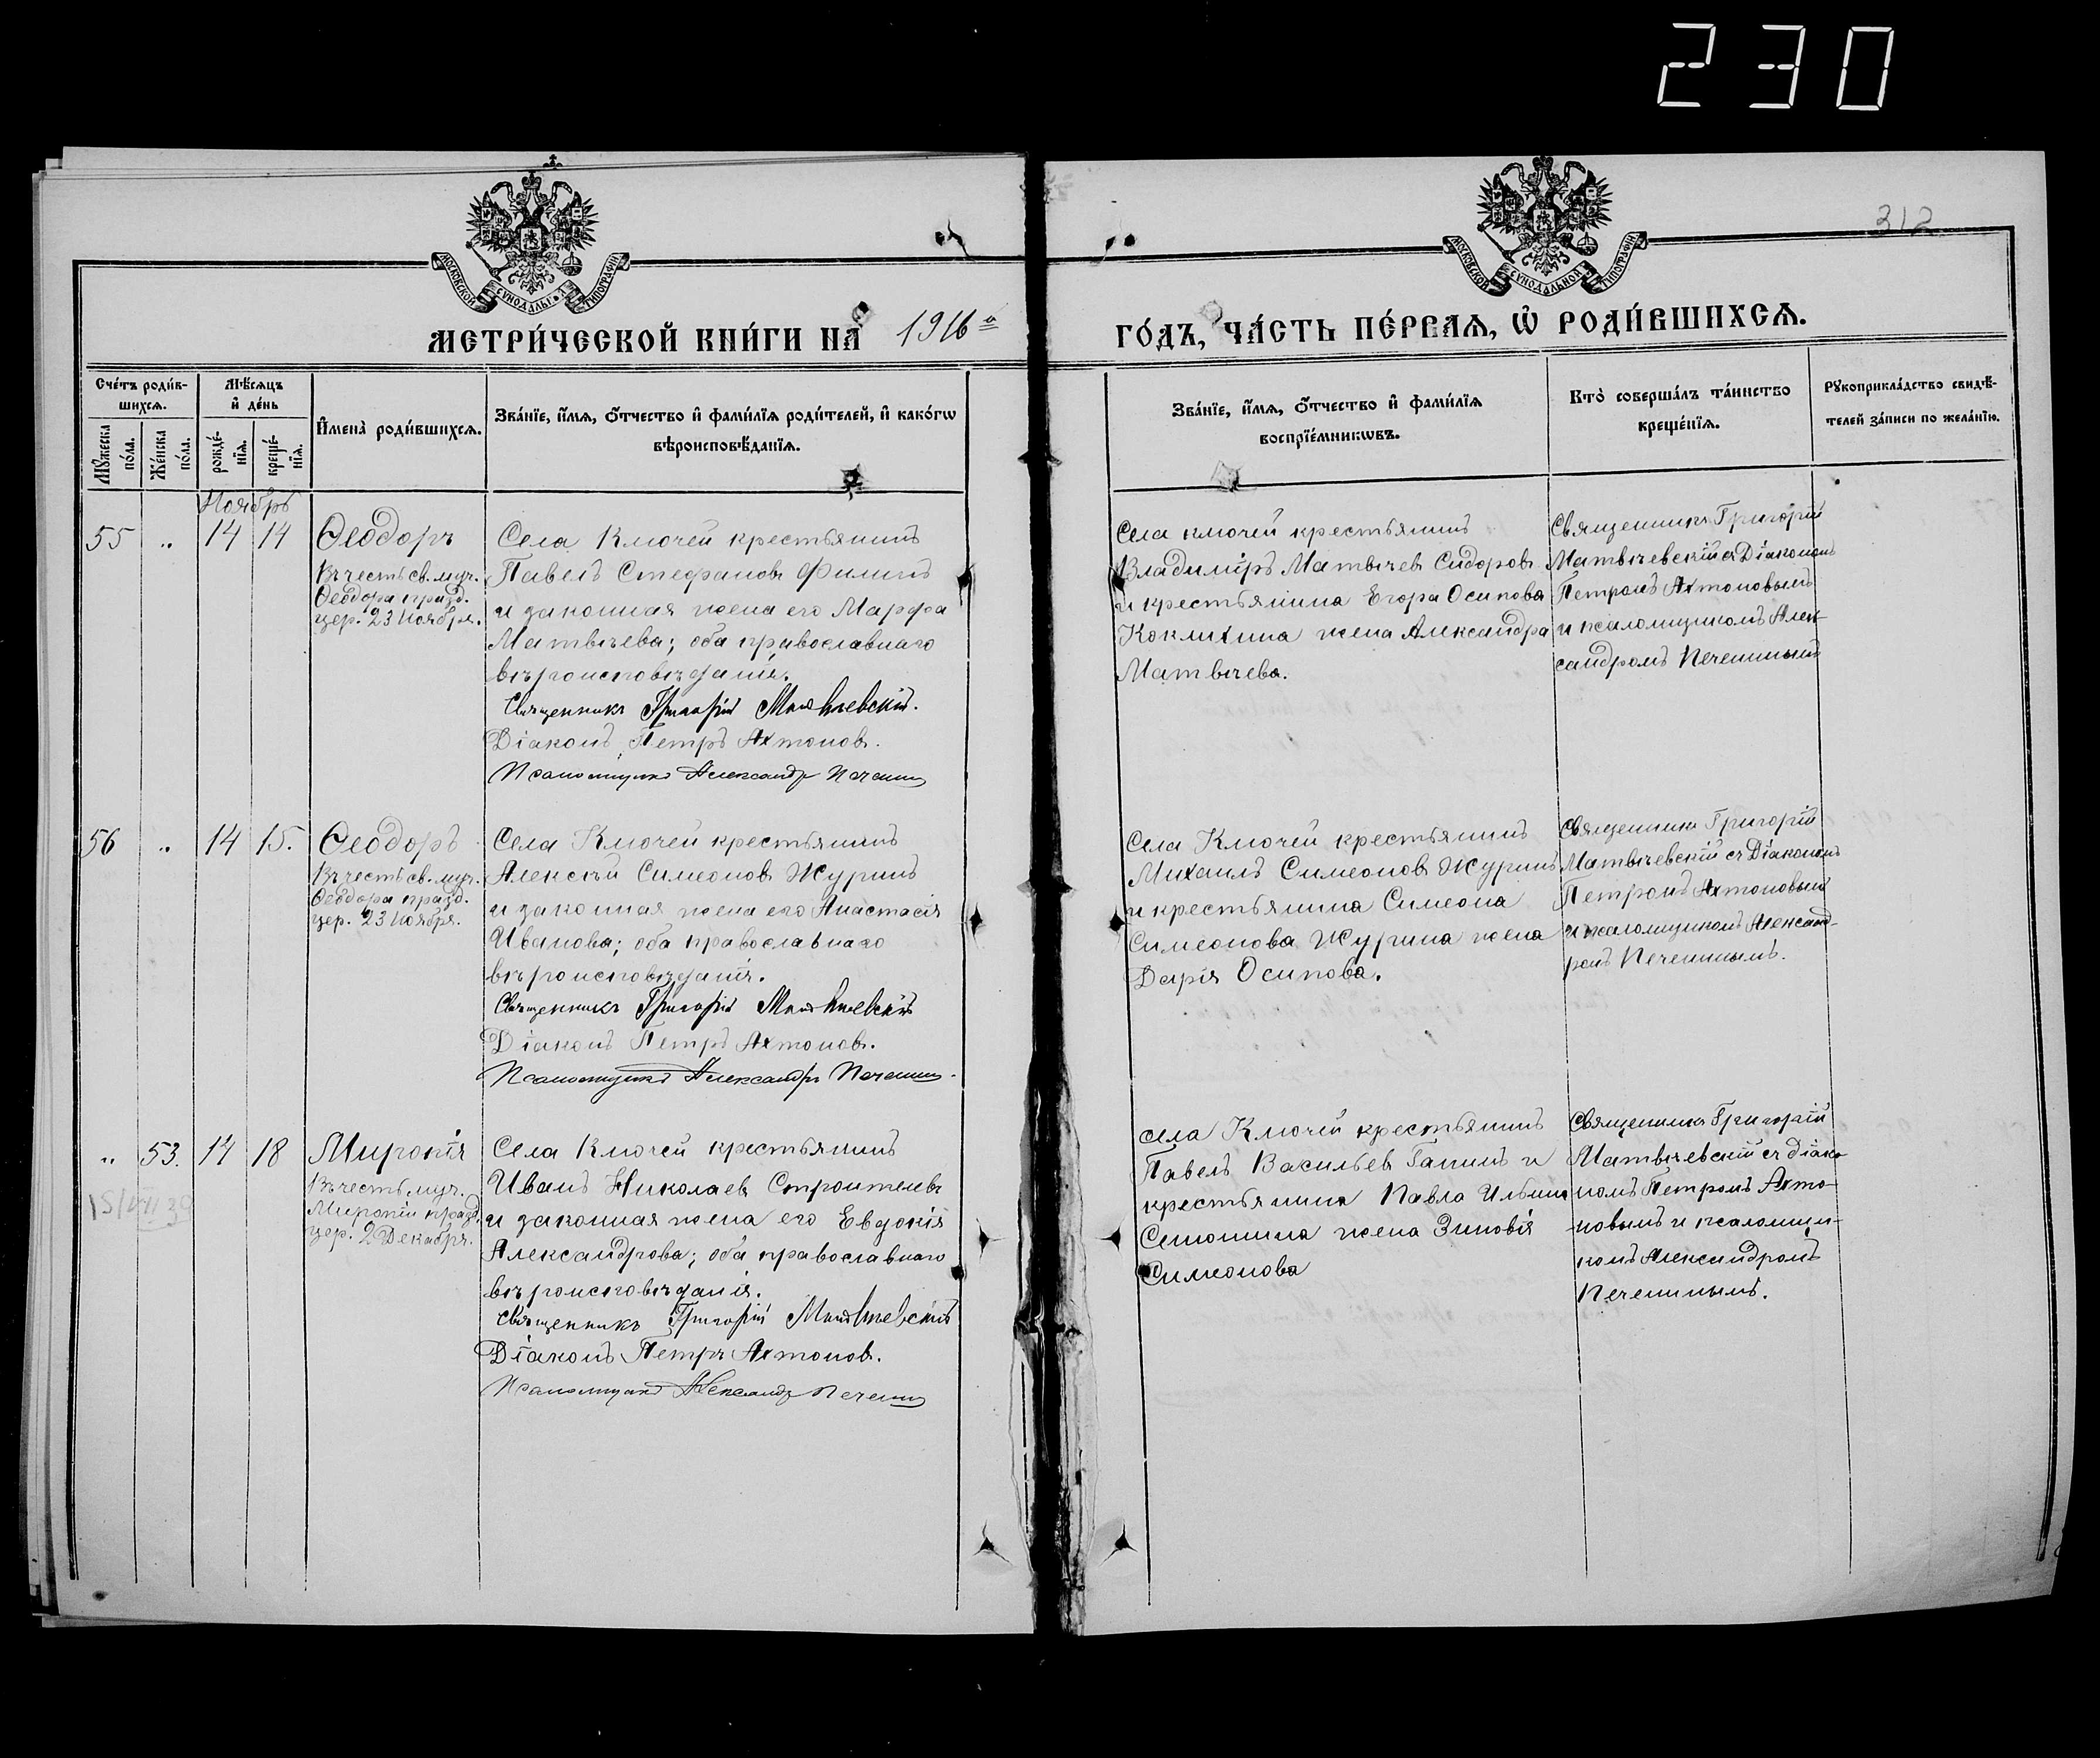 230
312
МОСКОВСКОЙ СѴНОДАЛЬНОЙ ТИПОГРАФІИ
МОСКОВСКОЙ СѴНОДАЛЬНОЙ ТИПОГРАФІИ
МЕТРИ́ЧЕСКОЙ КНИ́ГИ НА 1916 го́дъ, ЧА́СТЬ ПЕ́РВАѦ, Ѡ҆ РОДИ́ВШИХСѦ.
Сче́тъ роди́вшихсѧ.
Мꙋ́жеска по́ла.
Же́нска по́ла.
Мѣ́сѧцъ и҆ де́нь
рожде́нїѧ.
креще́нїѧ.
И҆мена̀ роди́вшихсѧ.
Зва́нїе, и҆́мѧ, ѻ҆́тчество и҆ фами́лїѧ роди́телей, и҆ како́гѡ
вѣроисповѣ́данїѧ.
Зва́нїе, и҆́мѧ, ѻ҆́тчество и҆ фами́лїѧ
воспрїе́мникѡвъ.
Кто̀ соверша́лъ та́инство
креще́нїѧ.
Рꙋкоприкла́дство свидѣ́-
телей за́писи по жела́нїю.
Ноябрь
55 " 14 14
Ѳеодоръ
Въ честь св. муч.
Ѳеодора празд.
цер. 23 Ноября.
Села Ключей крестьянинъ
Павелъ Стефановъ Филинъ
и законная жена его Марфа
Матвѣева; оба православнаго
вѣроисповѣданія.
Священникъ Григорій Матвѣевскій.
Діаконъ Петръ Ахтоновъ.
Псаломщикъ Александръ Печенинъ
Села Ключей крестьянинъ
Владиміръ Матвѣевъ Сидоровъ
и крестьянина Егора Осипова
Коклихина жена Александра
Матвѣева.
Священникъ Григорій
Матвѣевскій съ Діакономъ
Петромъ Ахтоновымъ
и псаломщикомъ Алек-
сандромъ Печенинымъ
56 " 14 15.
Ѳеодоръ
Въ честь св. муч.
Ѳеодора празд.
цер. 23 Ноября.
Села Ключей крестьянинъ
Алексѣй Симеоновъ Журинъ
и законная жена его Анастасія
Иванова; оба православнаго
вѣроисповѣданія.
Священникъ Григорій Матвѣевскій
Діаконъ Петръ Ахтоновъ.
Псаломщикъ Александръ Печенинъ.
Села Ключей крестьянинъ
Михаилъ Симеоновъ Журинъ
и крестьянина Симеона
Симеонова Журина жена
Дарія Осипова.
Священникъ Григорій
Матвѣевскій съ Діакономъ
Петромъ Ахтоновымъ
и псаломщикомъ Александ-
ромъ Печенинымъ.
" 53. 14 18
Миропія
Въ честь муч.
Миропіи празд.
цер. 2 Декабря.
Села Ключей крестьянинъ
Иванъ Николаевъ Строителевъ
и законная жена его Евдокія
Александрова; оба православнаго
вѣроисповѣданія.
Священникъ Григорій Матвѣевскій
Діаконъ Петръ Ахтоновъ.
Псаломщикъ Александръ Печенинъ
села Ключей крестьянинъ
Павелъ Васильевъ Ганинъ и
крестьянина Павла Ильина
Сенюшина жена Зиновія
Симеонова
Священникъ Григорій
Матвѣевскій съ діако-
номъ Петромъ Ахто-
новымъ и псаломщи-
комъ Александромъ
Печенинымъ.